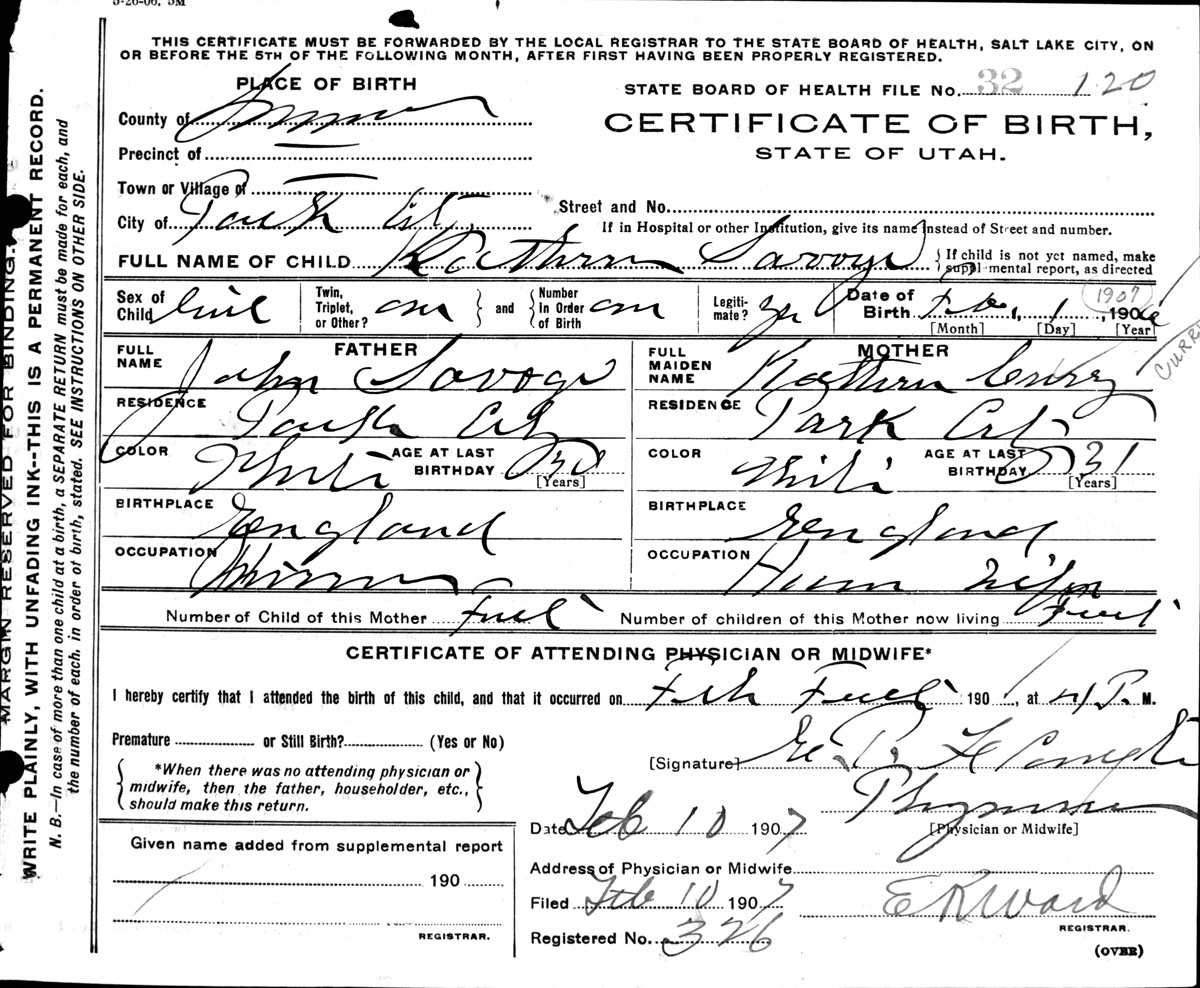 5-26-06. 5M
THIS CERTIFICATE MUST BE FORWARDED BY THE LOCAL REGISTRAR TO THE STATE BOARD OF HEALTH, SALT LAKE CITY, ON
OR BEFORE THE 5TH OF THE FOLLOWING MONTH, AFTER FIRST HAVING BEEN PROPERLY REGISTERED.
MARGIN RESERVED FOR BINDING.
WRITE PLAINLY, WITH UNFADING INK--THIS IS A PERMANENT RECORD.
N. B.—In case of more than one child at a birth, a SEPARATE RETURN must be made for each, and
the number of each. in order of birth, stated. SEE INSTRUCTIONS ON OTHER SIDE.
PLACE OF BIRTH
STATE BOARD OF HEALTH FILE No. 32 120
County of Summit
CERTIFICATE OF BIRTH,
Precinct of
STATE OF UTAH.
Town or Village of
City of Park City
Street and No.
If in Hospital or other Institution, give its name instead of Street and number.
FULL NAME OF CHILD Kathrun Savoye
If child is not yet named, make
supplemental report, as directed
Sex of Child Twin, Triplet, or Other? and Number In Order of Birth Legiti-mate? Date of Birth Feb 1, 1906 1907
[Month] [Day] [Year]
FATHER
MOTHER
FULL NAME John Savoye
FULL MAIDEN NAME Kathrun Curry
CURR
RESIDENCE Park City
RESIDENCE Park City
COLOR White AGE AT LAST BIRTHDAY 30 [Years]
COLOR White AGE AT LAST BIRTHDAY 31 [Years]
BIRTHPLACE England
BIRTHPLACE England
OCCUPATION Miner
OCCUPATION House Wife
Number of Child of this Mother First Number of children of this Mother now living First
CERTIFICATE OF ATTENDING PHYSICIAN OR MIDWIFE*
I hereby certify that I attended the birth of this child, and that it occurred on Feb First 190, at 4 P. M.
Premature or Still Birth? (Yes or No)
[Signature]
*When there was no attending physician or
midwife, then the father, householder, etc.,
should make this return.
Physician
[Physician or Midwife]
Date Feb 10 1907
Given name added from supplemental report
190
REGISTRAR.
Address of Physician or Midwife
Filed Feb 10 1907 E R Ward
REGISTRAR.
Registered No. 326
(OVER)